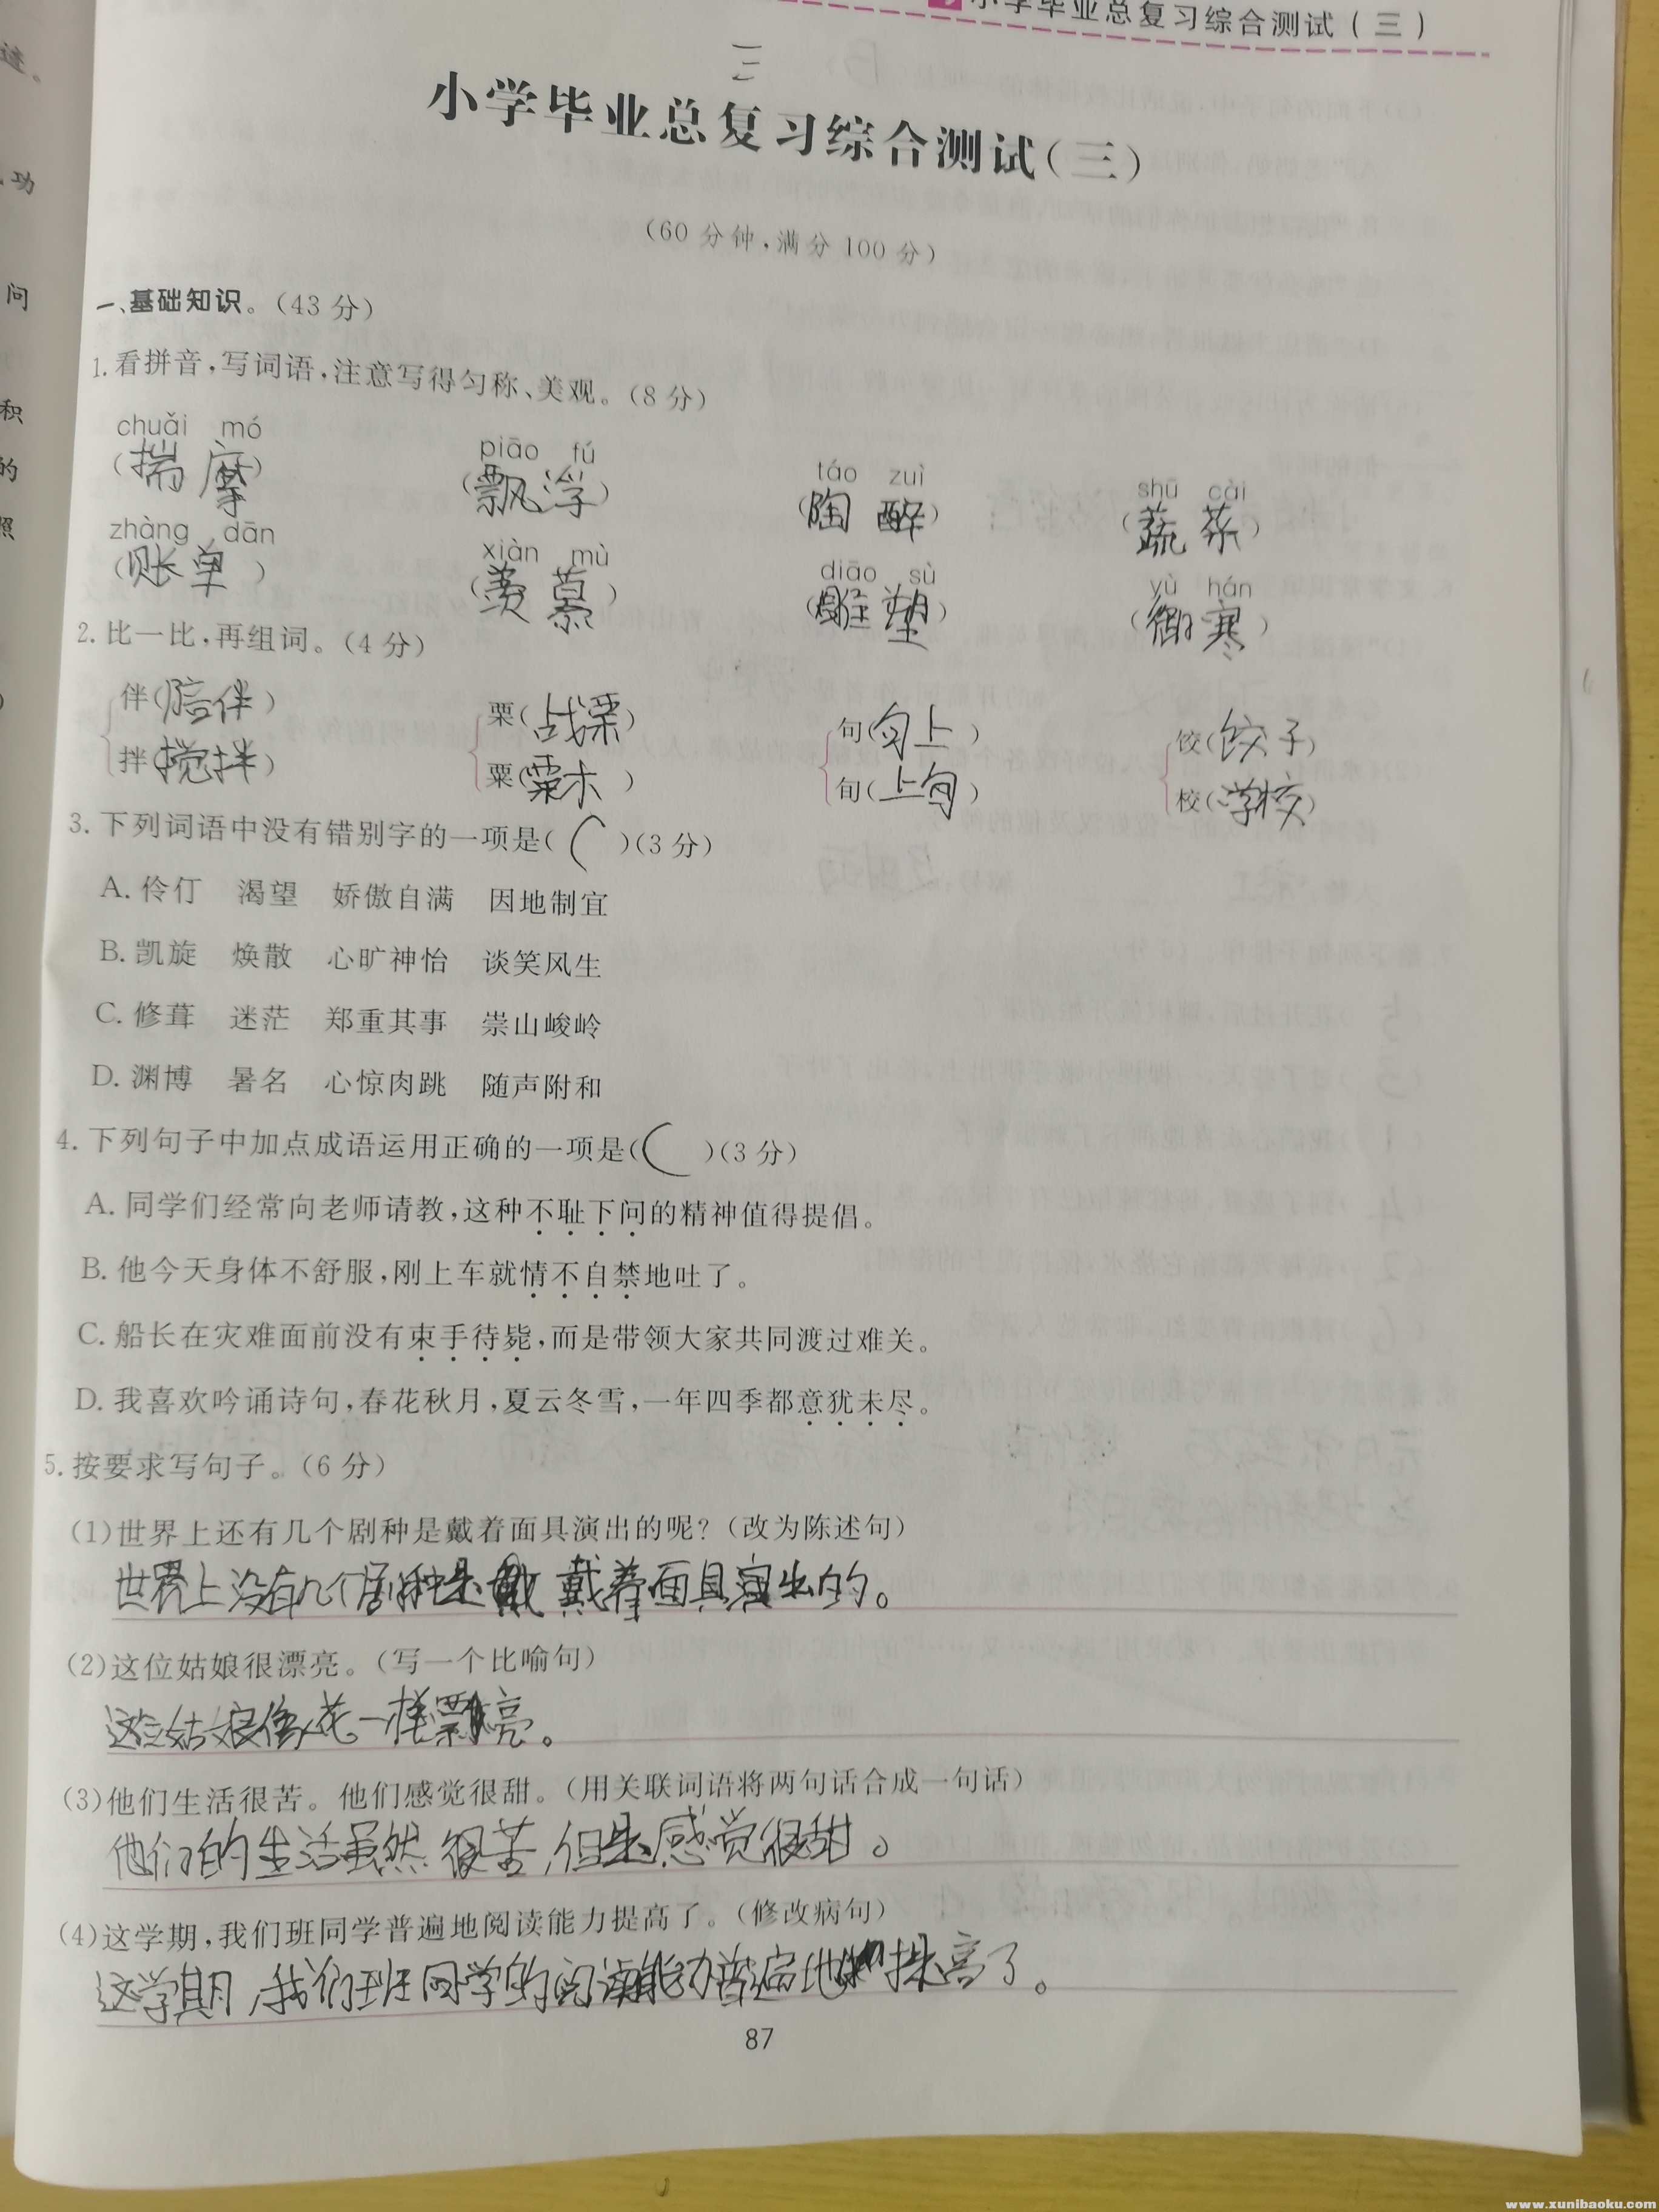 小学毕业总复习综合测试(三)
三
小学毕业总复习综合测试(三)
(60分钟,满分100分)
一、基础知识。(43分)
1.看拼音,写词语,注意写得匀称、美观。(8分)
chuǎi mó piāo fú táo zuì shū cài
(揣摩) (飘浮) (陶醉) (蔬菜)
zhàng dān xiàn mù diāo sù yù hán
(账单) (羡慕) (雕塑) (御寒)
2.比一比,再组词。(4分)
伴(陪伴) 栗(战栗) 句(句上) 饺(饺子)
拌(搅拌) 粟(粟木) 旬(上旬) 校(学校)
3.下列词语中没有错别字的一项是(C)(3分)
A.伶仃 渴望 娇傲自满 因地制宜
B.凯旋 焕散 心旷神怡 谈笑风生
C.修葺 迷茫 郑重其事 崇山峻岭
D.渊博 暑名 心惊肉跳 随声附和
4.下列句子中加点成语运用正确的一项是(C)(3分)
A.同学们经常向老师请教,这种不耻下问的精神值得提倡。
B.他今天身体不舒服,刚上车就情不自禁地吐了。
C.船长在灾难面前没有束手待毙,而是带领大家共同渡过难关。
D.我喜欢吟诵诗句,春花秋月,夏云冬雪,一年四季都意犹未尽。
5.按要求写句子。(6分)
(1)世界上还有几个剧种是戴着面具演出的呢?(改为陈述句)
世界上没有几个剧种是戴着面具演出的。
(2)这位姑娘很漂亮。(写一个比喻句)
这位姑娘像花一样漂亮。
(3)他们生活很苦。他们感觉很甜。(用关联词语将两句话合成一句话)
他们的生活虽然很苦,但是感觉很甜。
(4)这学期,我们班同学普遍地阅读能力提高了。(修改病句)
这学期,我们班同学的阅读能力普遍地提高了。
87
www.xunibaoku.com